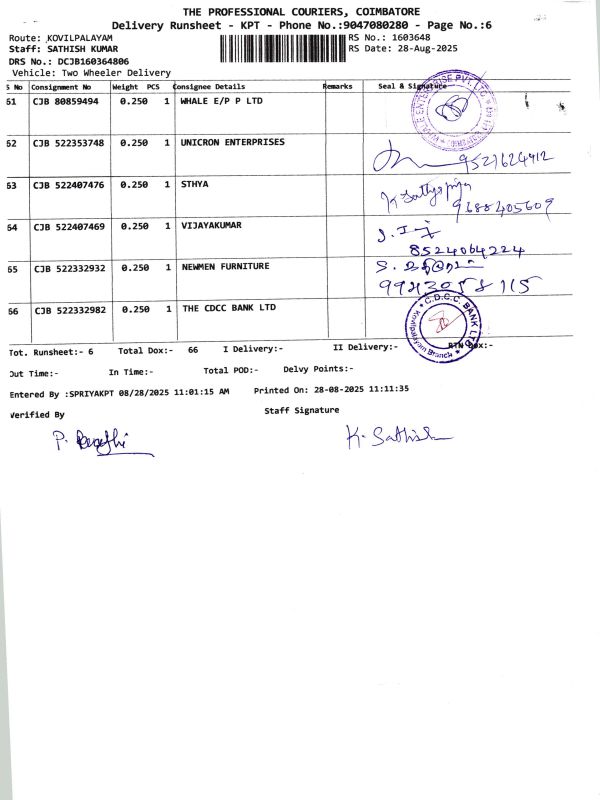 THE PROFESSIONAL COURIERS, COIMBATORE
Delivery Runsheet - KPT - Phone No.:9047080280 - Page No.:6
Route: KOVILPALAYAM RS No.: 1603648
Staff: SATHISH KUMAR RS Date: 28-Aug-2025
DRS No.: DCJB160364806
Vehicle: Two Wheeler Delivery
S No Consignment No Weight PCS Consignee Details Remarks Seal & Signature
61 CJB 80859494 0.250 1 WHALE E/P P LTD
62 CJB 522353748 0.250 1 UNICRON ENTERPRISES
9521624912
63 CJB 522407476 0.250 1 STHYA K Sathypriya
9688405609
64 CJB 522407469 0.250 1 VIJAYAKUMAR
8524064224
65 CJB 522332932 0.250 1 NEWMEN FURNITURE
66 CJB 522332982 0.250 1 THE CDCC BANK LTD C.D.C.C. BANK LTD
Kovilpalayam Branch
Tot. Runsheet:- 6 Total Dox:- 66 I Delivery:- II Delivery:- RTN Dox:-
Out Time:- In Time:- Total POD:- Delvy Points:-
Entered By :SPRIYAKPT 08/28/2025 11:01:15 AM Printed On: 28-08-2025 11:11:35
Verified By Staff Signature
P. K. Sathish